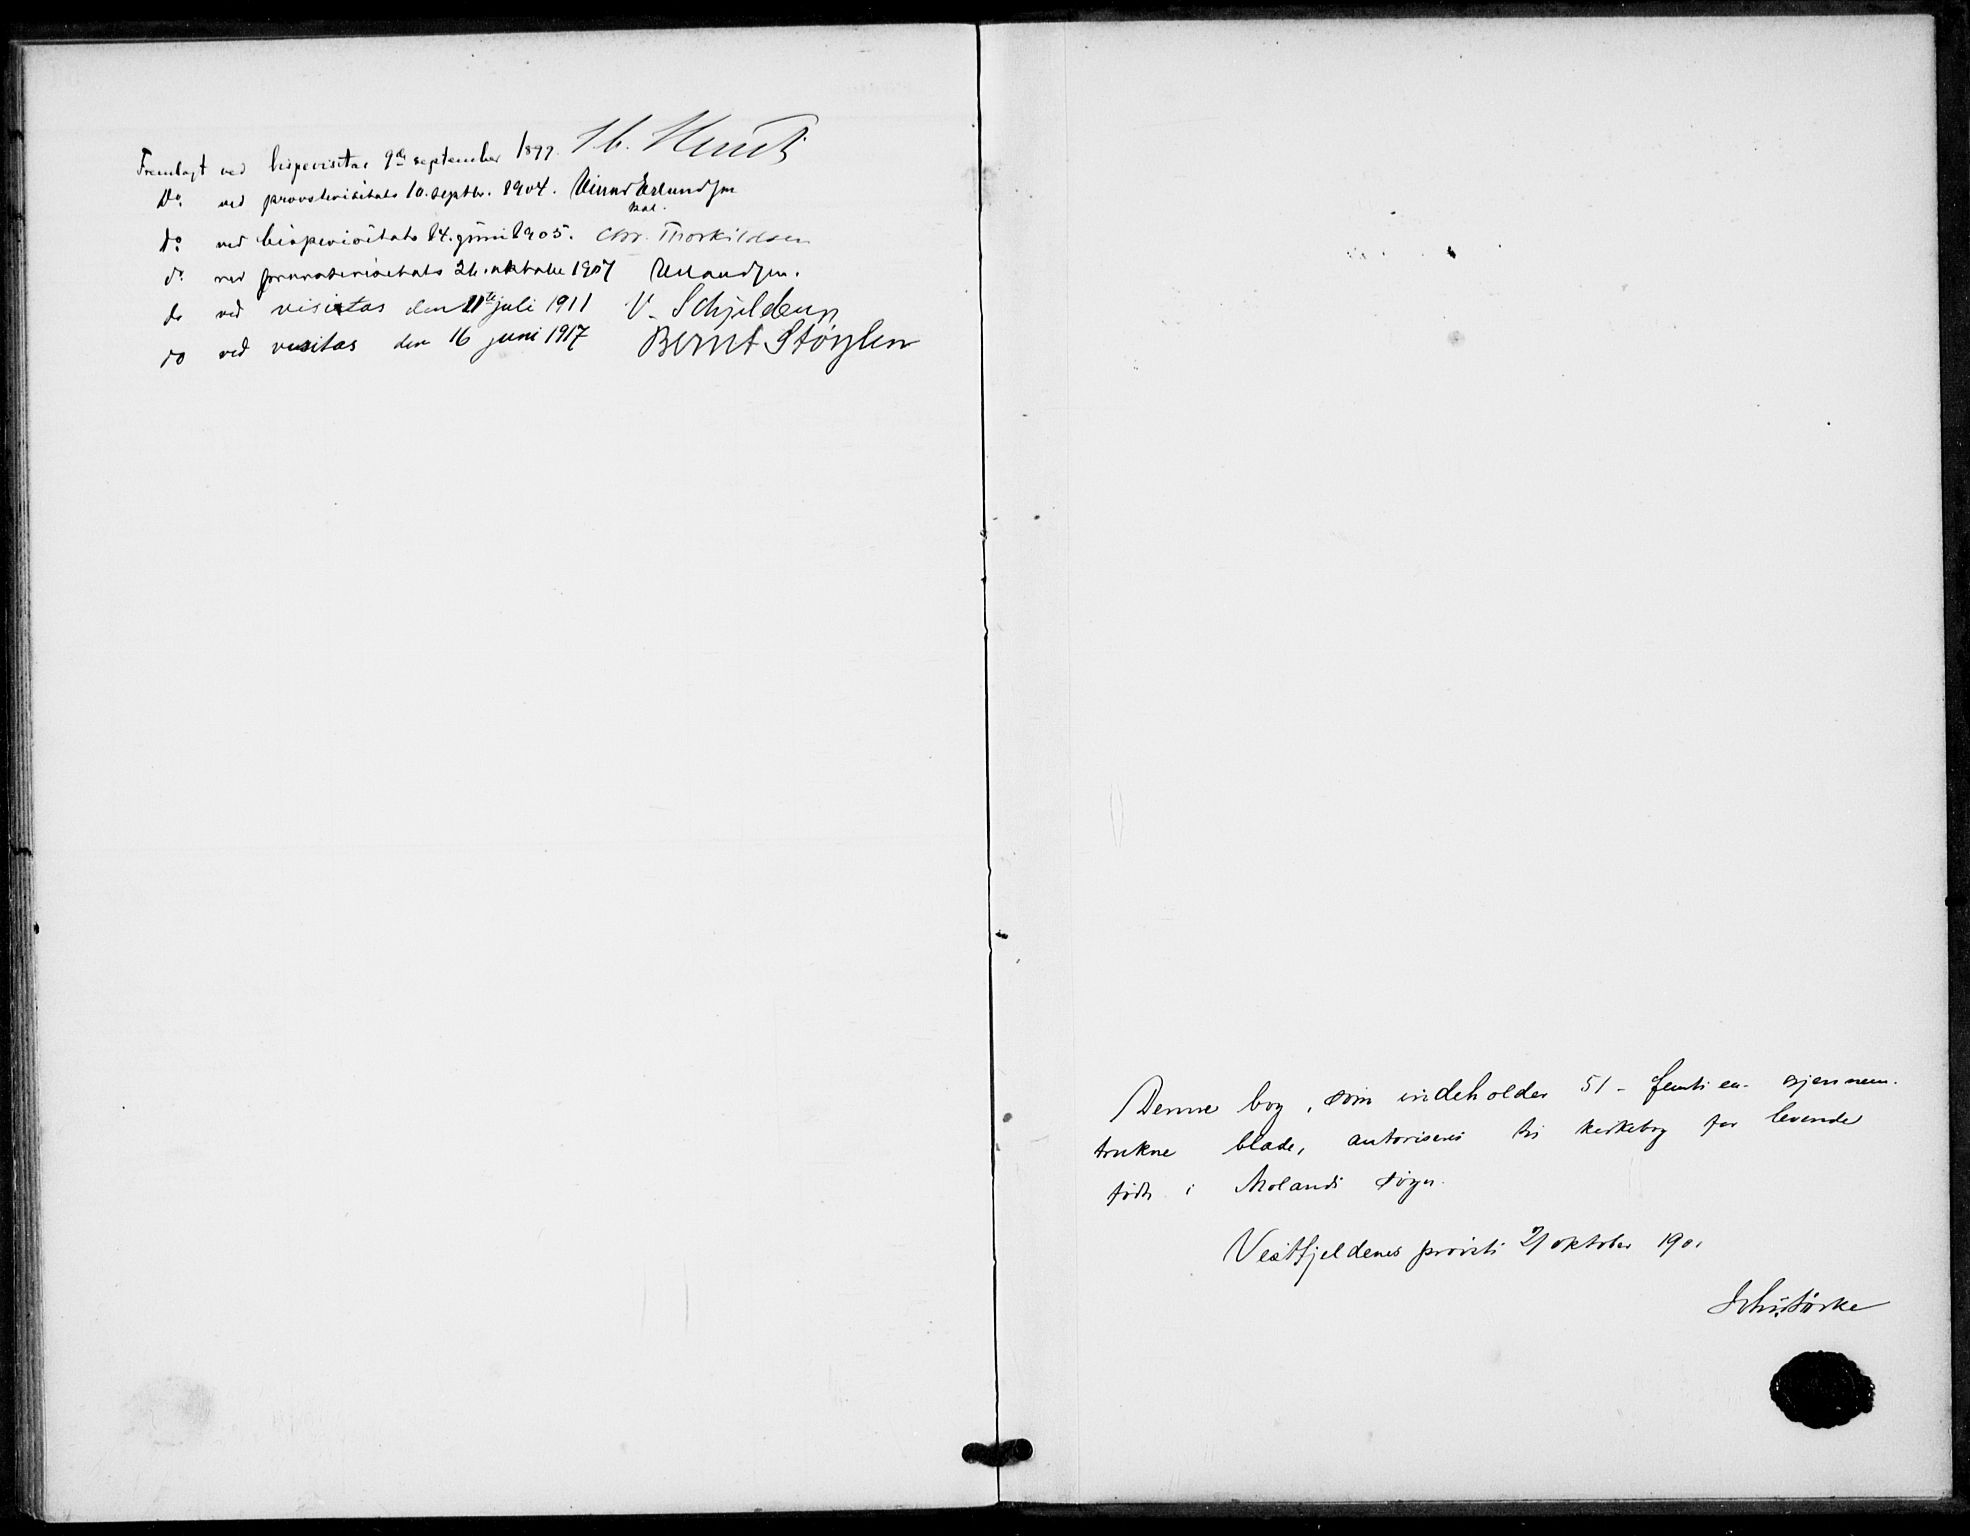 Fremlagt ved bispevisitas 9de september 1899.
Do. ved provstevisitats 10. septbr. 1904.
do. ved bispevisitats 14. juni 1905. Chr. Thorkildsen
do. ved provstevisitats 26. oktober 1907
do ved visitas den 11te juli 1911 V. Schjelderup
do ved visitas den 16 juni 1917 Bernt Støylen
Denne bog, som indeholder 51 - femti en - gjennem-
trukne blade, autoriseres til kirkebog for levende
fødte i Molands sogn.
Vestfjeldenes provsti 21 oktober 1901